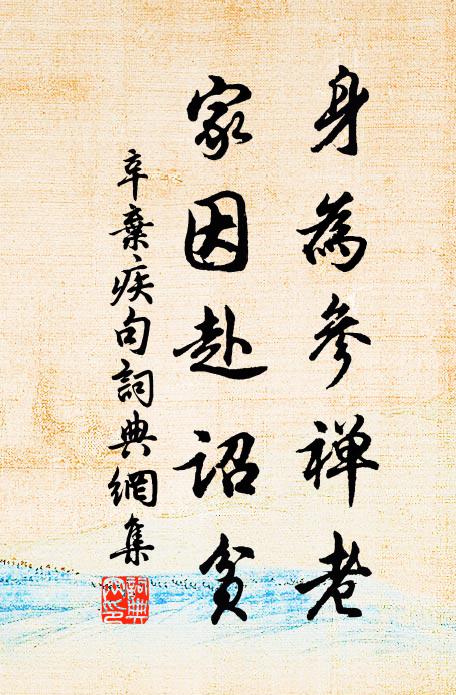 身為參禪老
家因赴詔貧
辛棄疾句詞典網集